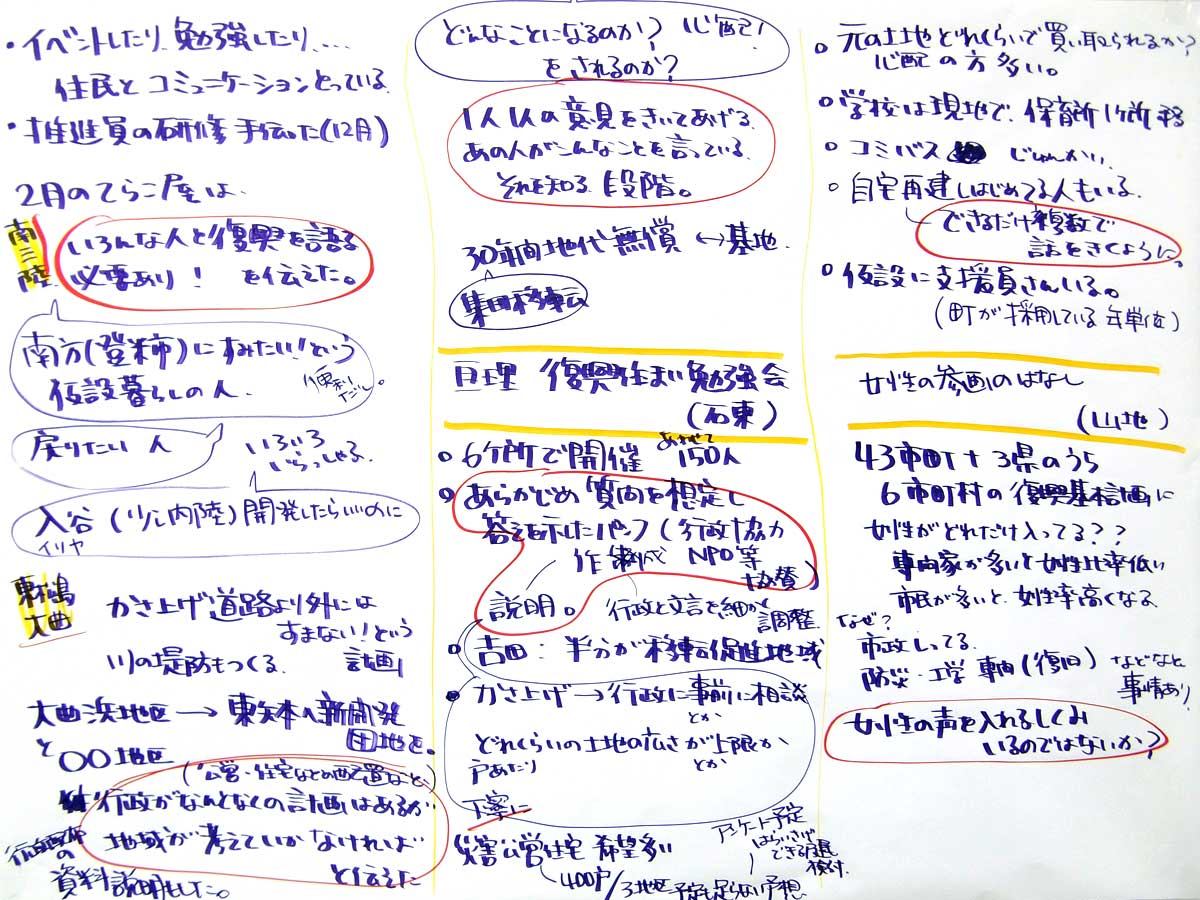 ・イベントしたり、勉強したり....
住民と コミュニケーションとっている
・推進員の研修 手伝った(12月)
2月のてらこ屋は、
南三陸
いろんな人と復興を語る
必要あり! を伝えた。
南方(登米市)にすみたい!という
仮設暮らしの人
便利だし。
戻りたい人
いろいろ
いらっしゃる。
入谷(少し内陸)開発したらいいのに
イリヤ
東松島
大曲
かさ上げ道路より外には
すまない!という
川の堤防もつくる。 計画
大曲浜地区 → 東矢本へ新開発
と〇〇地区
団地を。
(公営・住宅などの配置など)
行政がなんとなくの計画はあるが
地域が考えていかなければ
と伝えた
行政配布の
資料説明もした。
どんなことになるのか? 心配!
をされるのか?
1人1人の意見をきいてあげる
あの人がこんなことを言っている
それを知る 段階。
30年間地代無償 ↔ 基地
集団移転
亘理 復興住まい勉強会
(石東)
6ヶ所で開催 あわせて150人
あらかじめ質問を想定し
答えを示したパンフ(行政協力
作成 NPO等
協賛)
説明。 行政と文言を細かく
調整
吉田:半分が移転促進地域
かさ上げ → 行政に事前に相談
とか
どれくらいの土地の広さが上限か
戸あたり とか
丁寧に
災害公営住宅 希望多い
400戸/3地区 予定も足らない予想
アンケート予定
はらいさげ
できる住民
検討
元の土地どれくらいで買い取られるか?
心配の方多い。
学校は現地で、保育所1ヶ所移
コミバス じゅんかい
自宅再建しはじめてる人もいる
できるだけ複数で
話をきくように。
仮設に支援員さんいる。
(町が採用している 年単位)
女性の参画のはなし
(山地)
43市町+3県のうち
6市町村の復興基本計画に
女性がどれだけ入ってる??
専門家が多いと女性比率低い
市民が多いと、女性率高くなる
なぜ?
市政しってる
防災・工学 専門(復旧) などなど
事情あり
女性の声を入れるしくみ
いるのではないか?